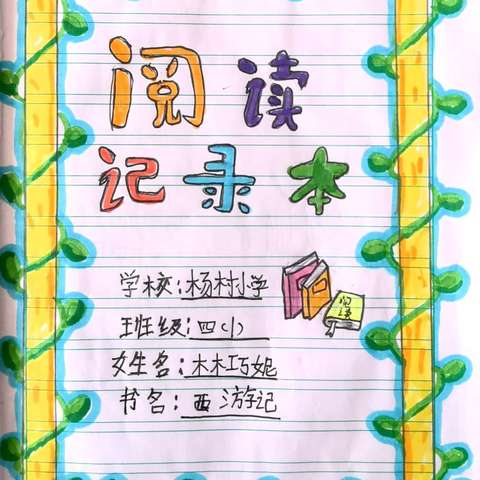 阅读
记录本
学校:杨村小学
阅读
班级:四(1)
姓名:林巧妮
书名:西游记